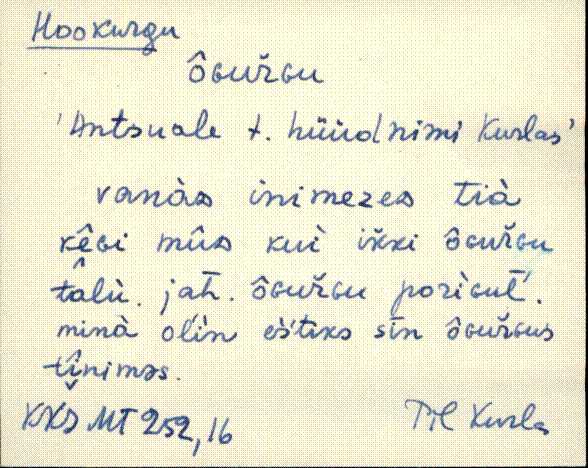 Hookurgu
ôɢuřɢu
'Antsuale t. hüüdnimi Kurlas'
vanàs inimezes tià
kêɢi mûs kuì ikki ôɢuřɢu
talù. jah. ôɢuřɢu poriɢut.
minà olin eśtiks sīn ôɢuřɢus
tînimas.
KKS MT 252, 16
Kurla